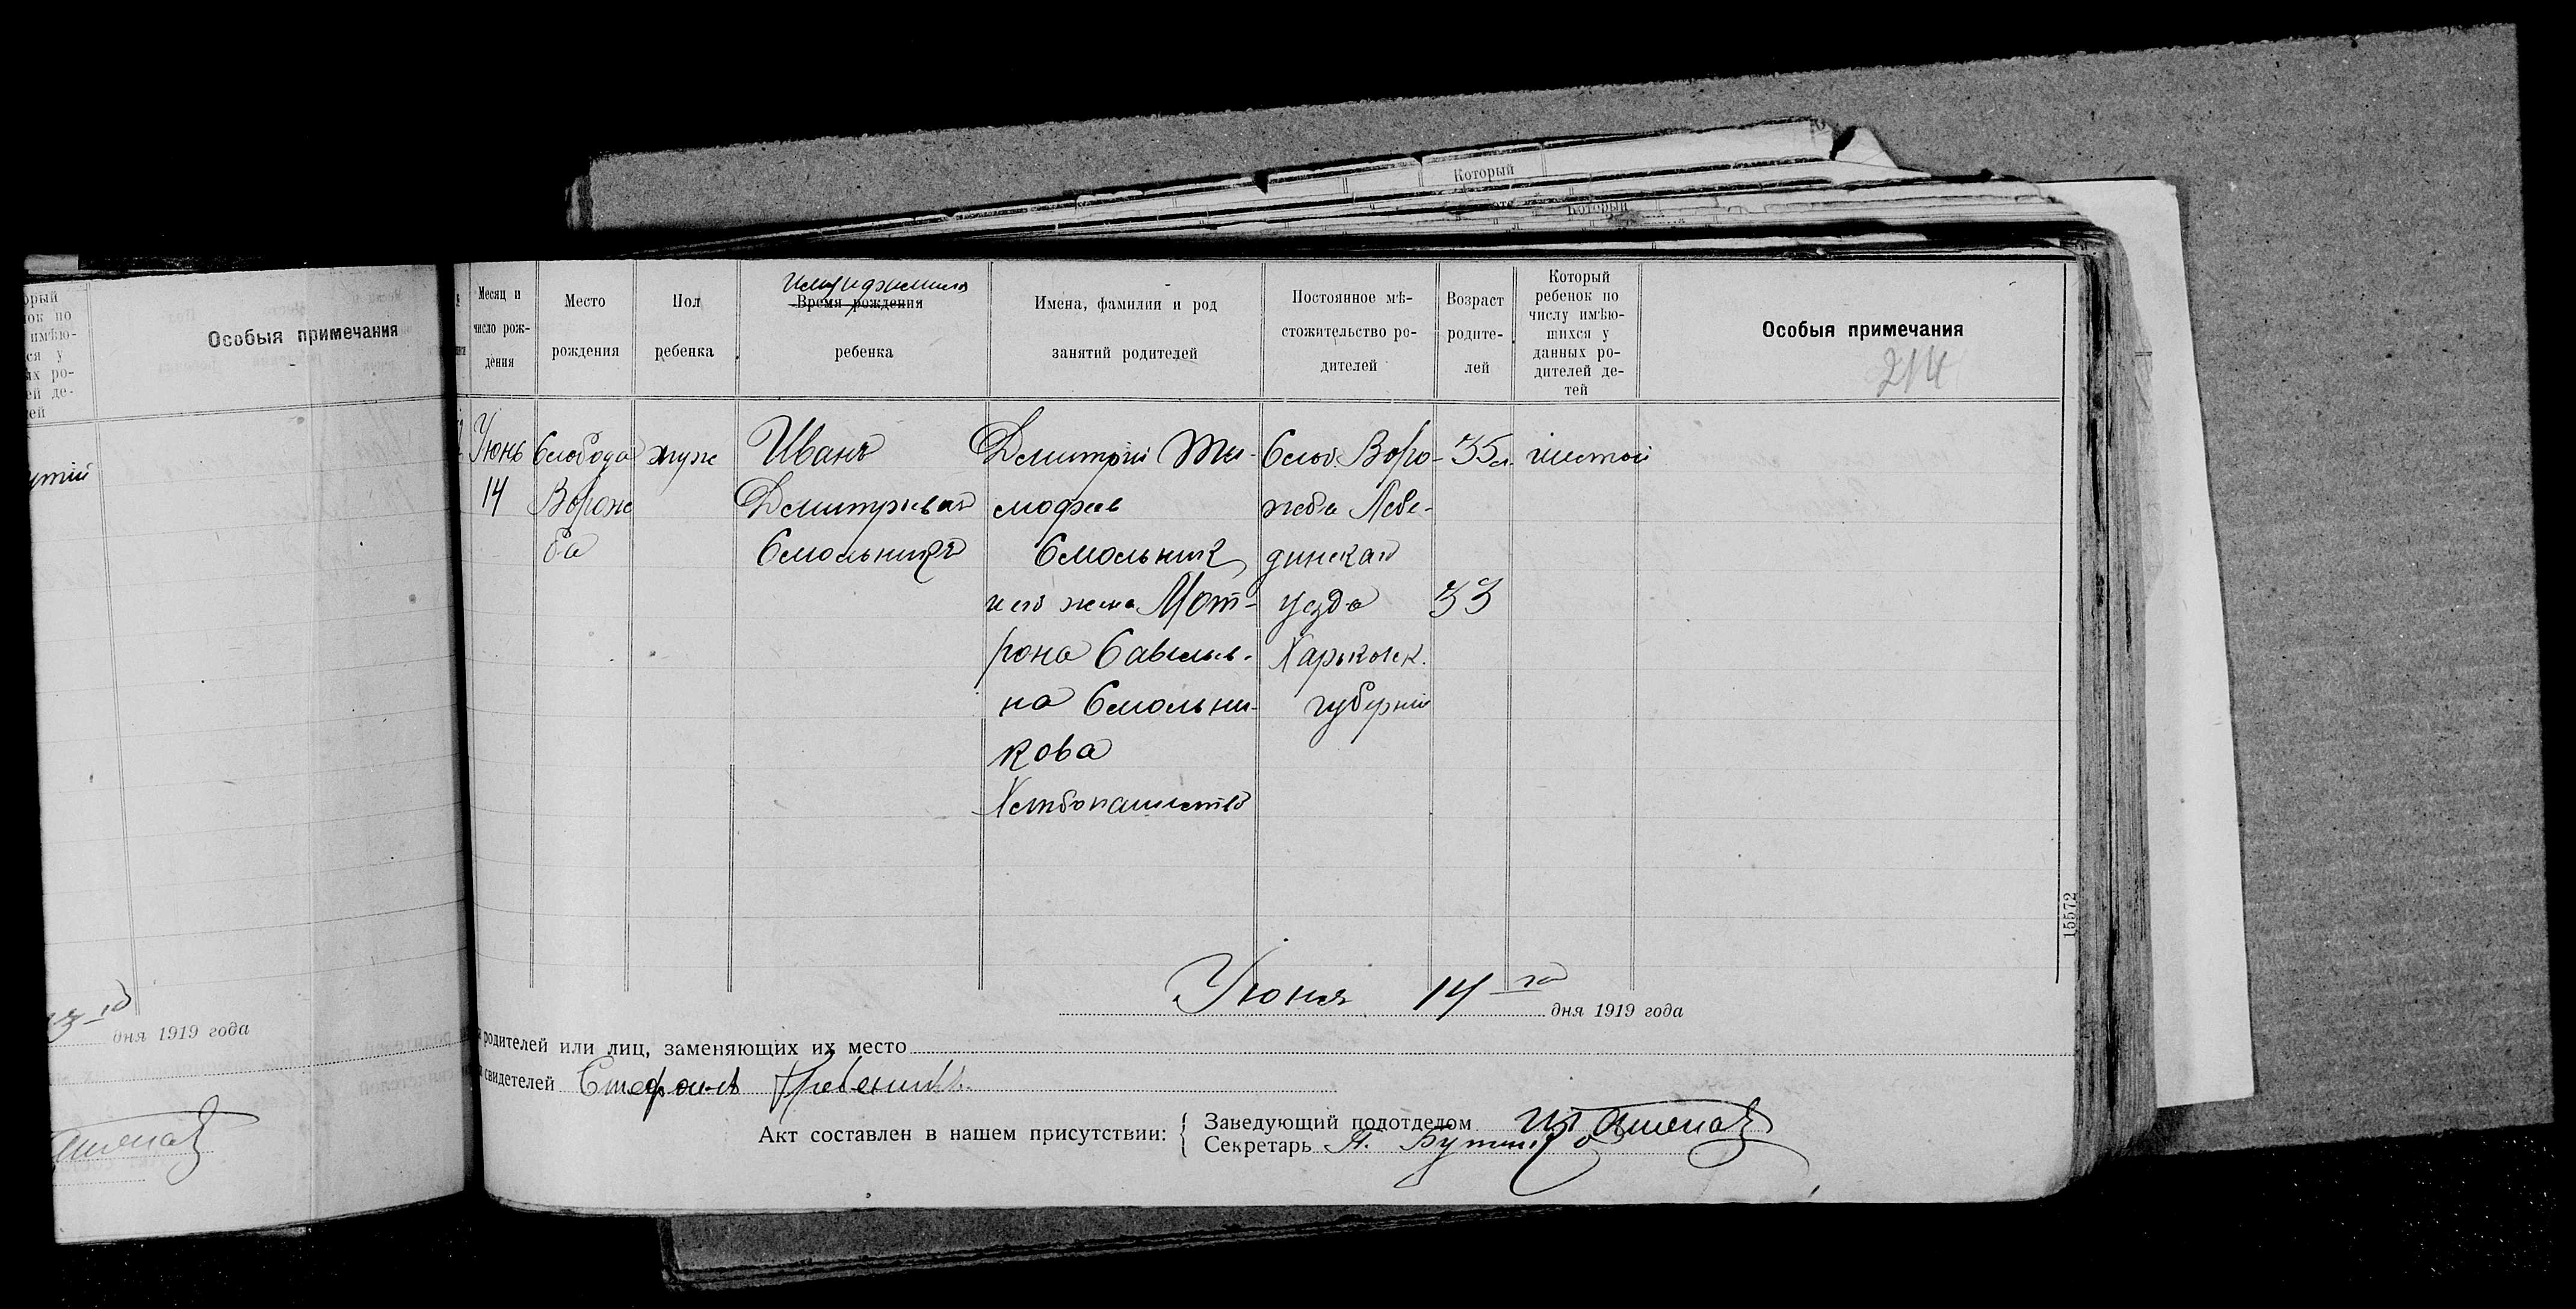 Который
Который
орый
ок по
имѣю-
ся у
ых ро-
ей де-
ей
Особыя примечания
13-го дня 1919 года
Месяц и
число рож-
дения
Место
рождения
Пол
ребенка
Имя и фамилия
Время рождения
ребенка
Имена, фамилии и род
занятий родителей
Постоянное мѣ-
стожительство ро-
дителей
Возраст
родите-
лей
Который
ребенок по
числу имѣю-
шихся у
данных ро-
дителей де-
тей
Особыя примечания
214
Июнь
14
Слобода
Ворож
ба
муж
Иванъ
Дмитриевич
Смольникъ
Дмитрій Ти-
мофеев
Смольник
и его жена Мот-
рона Савельев-
на Смольни-
кова
Хлебопашество
Слоб. Воро-
жба Лебе-
динскаго
уезда
Харьковск.
губерніи
35 л.
33
шестой
Июня 14 го дня 1919 года
родителей или лиц, заменяющих их место
свидетелей Стефанъ
Акт составлен в нашем присутствии:
Заведующий подотделом
Секретарь
15572